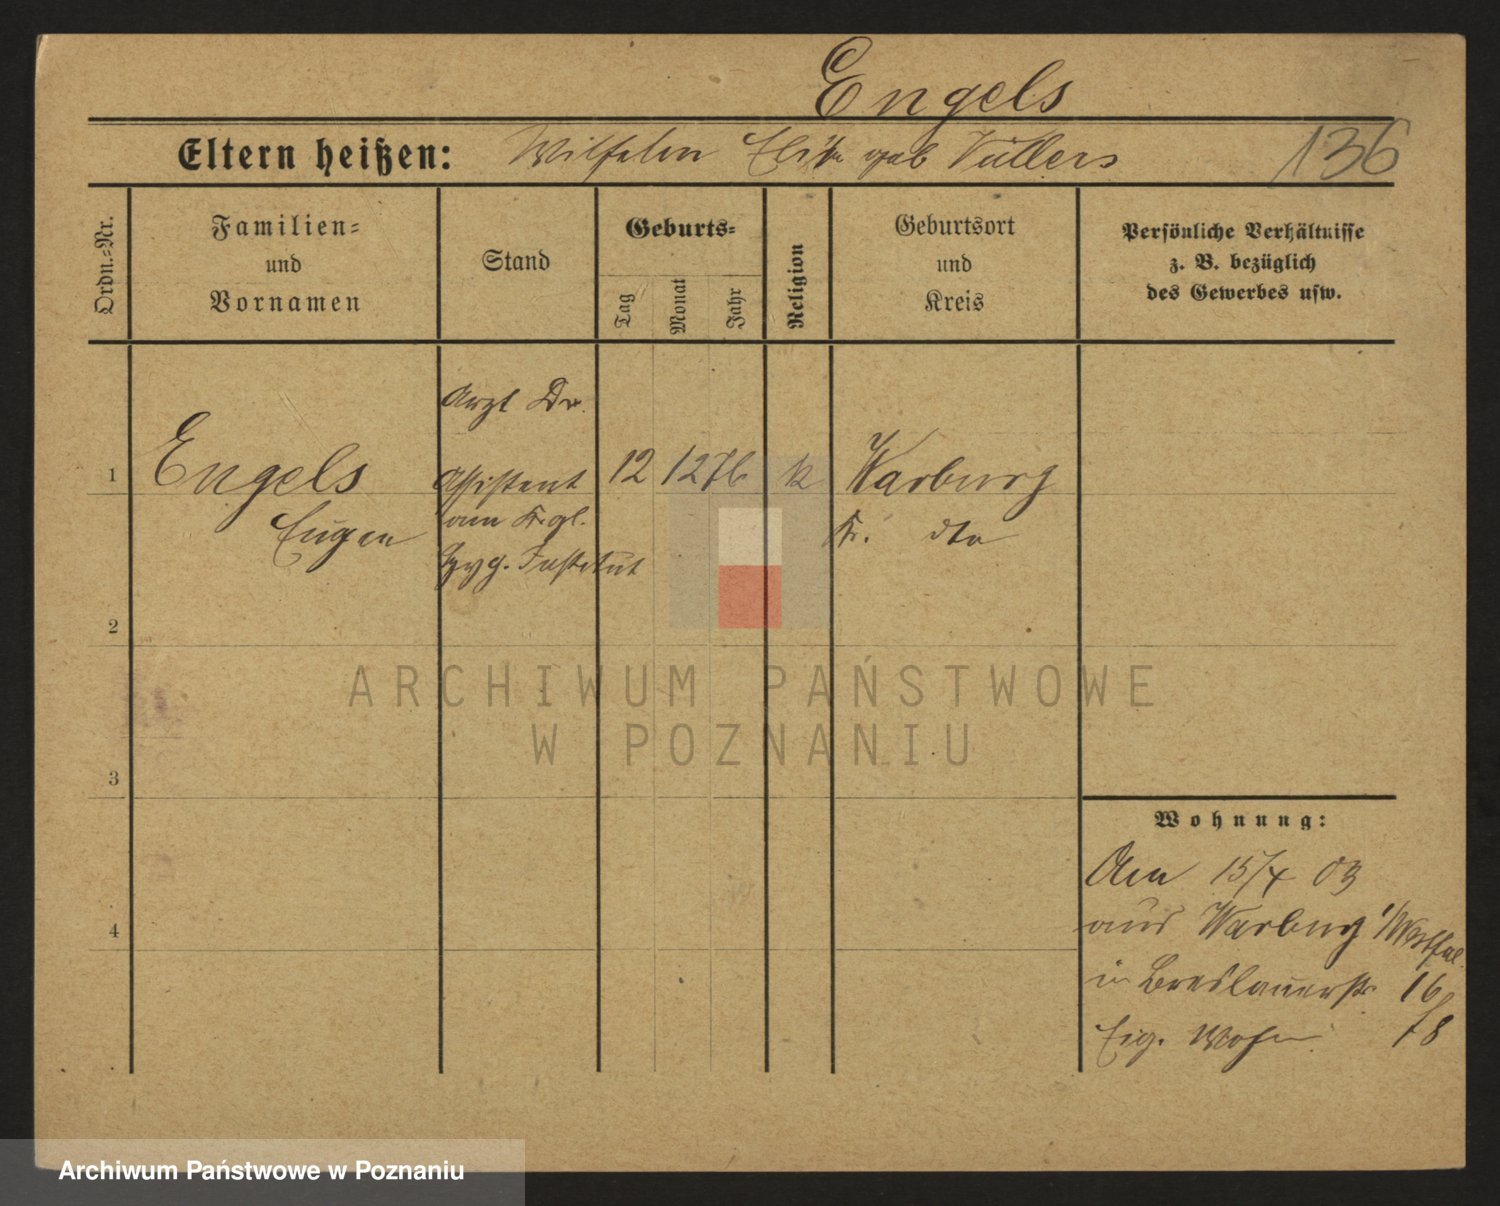 Engels
Eltern heißen: Wilhelm Elise geb Vüllers 136
Ordn.-Nr.
Familien-
und
Vornamen
Stand
Geburts-
Tag
Monat
Jahr
Religion
Geburtsort
und
Kreis
Persönliche Verhältnisse
z. B. bezüglich
des Gewerbes usw.
Arzt Dr.
1 Engels Assistent 12 12 76 k Warburg
Eugen am Kgl. Kr. dto
Hyg. Institut
2
3
4
Wohnung:
Am 15/4 03
aus Warburg i/Westfal.
in Breslauerstr 16
Eig. Wohn 8
ARCHIWUM PAŃSTWOWE
W POZNANIU
Archiwum Państwowe w Poznaniu